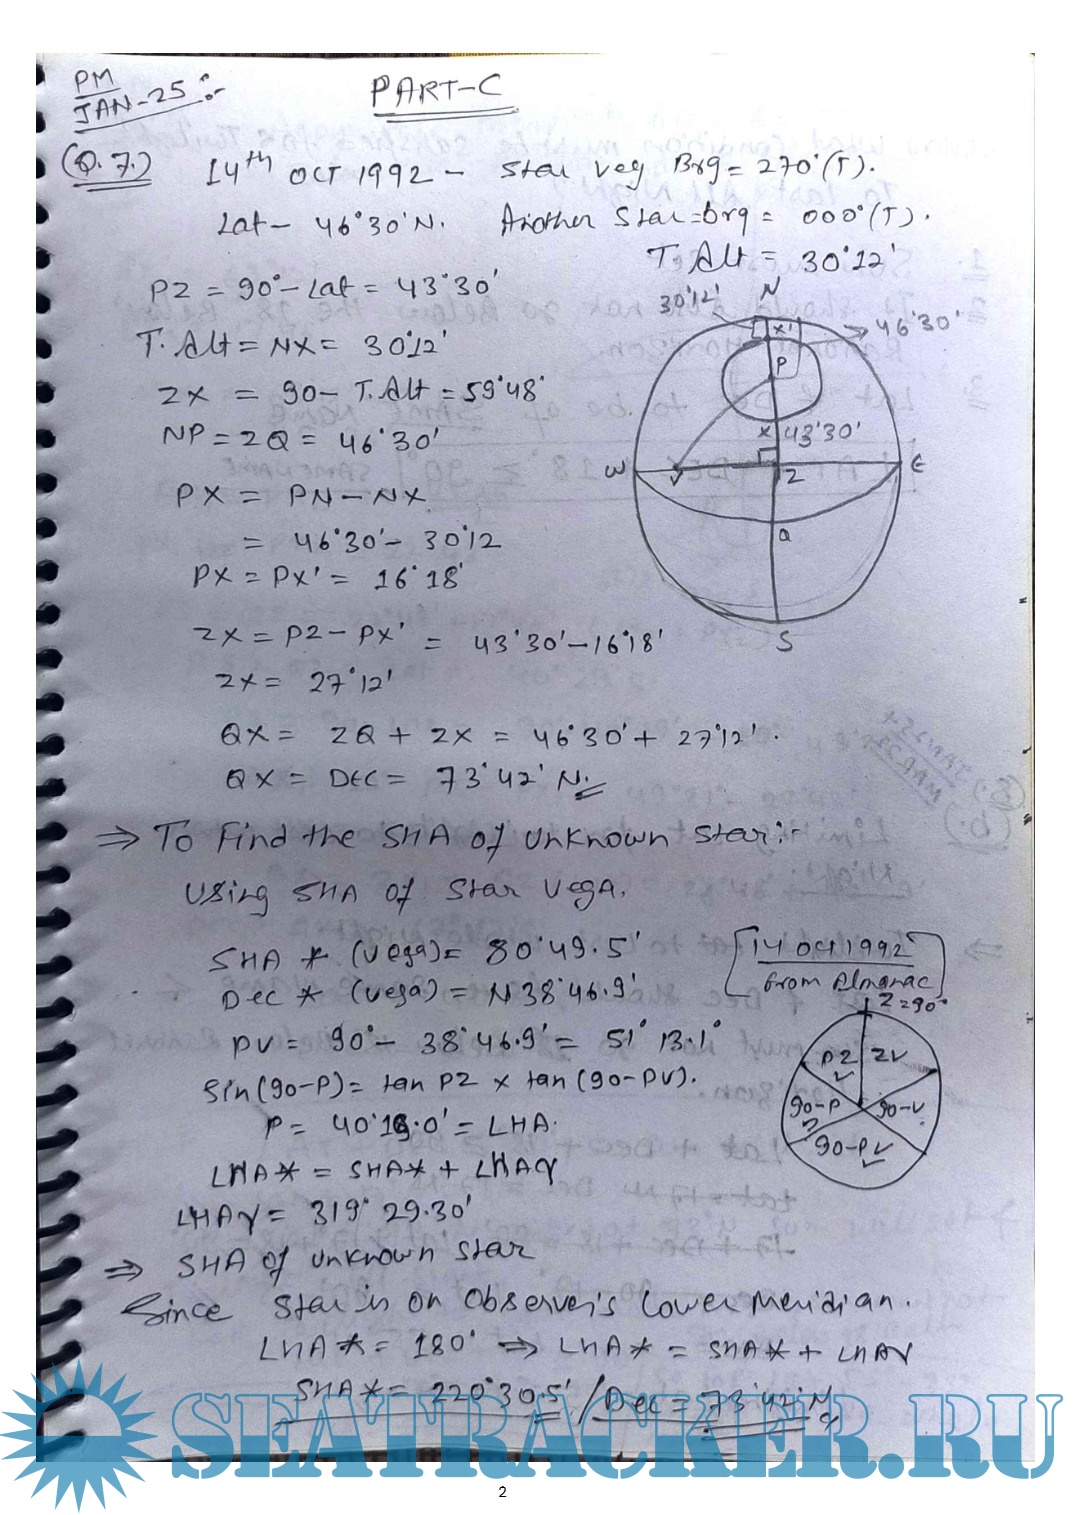 PM
JAN-25 :-
PART-C
(Q.7.) 14th OCT 1992 - Star veg Brg = 270°(T).
Lat - 46°30'N. Another Star = brg = 000°(T).
T. Alt = 30°12'
PZ = 90° - Lat = 43°30'
T. Alt = NX = 30°12'
ZX = 90 - T. Alt = 59°48'
NP = ZQ = 46°30'
PX = PN - NX
= 46°30' - 30°12
PX = PX' = 16°18'
30°12'
N
46°30'
X'
P
X 43°30'
W
V
Z
E
Q
S
ZX = PZ - PX' = 43°30' - 16°18'
ZX = 27°12'
QX = ZQ + ZX = 46°30' + 27°12'.
QX = DEC = 73°42' N.
⇒ To Find the SHA of Unknown Star:-
Using SHA of Star Vega.
SHA * (Vega) = 80°49.5'
Dec * (Vega) = N 38°46.9'
[14 Oct 1992
from Almanac]
PV = 90° - 38°46.9' = 51° 13.1°
Sin (90-P) = tan PZ x tan (90-PV).
P = 40°19.0' = LHA.
LHA* = SHA* + LHAϒ
LHAϒ = 319° 29.30'
Z = 90°
PZ
ZV
90-P
90-V
90-PV
⇒ SHA of unknown star
Since Star is on Observer's Lower Meridian.
LHA* = 180° ⇒ LHA* = SHA* + LHAϒ
SHA* = 220°30.5' / Dec = 73°42' N
SEATRACKER.RU
2